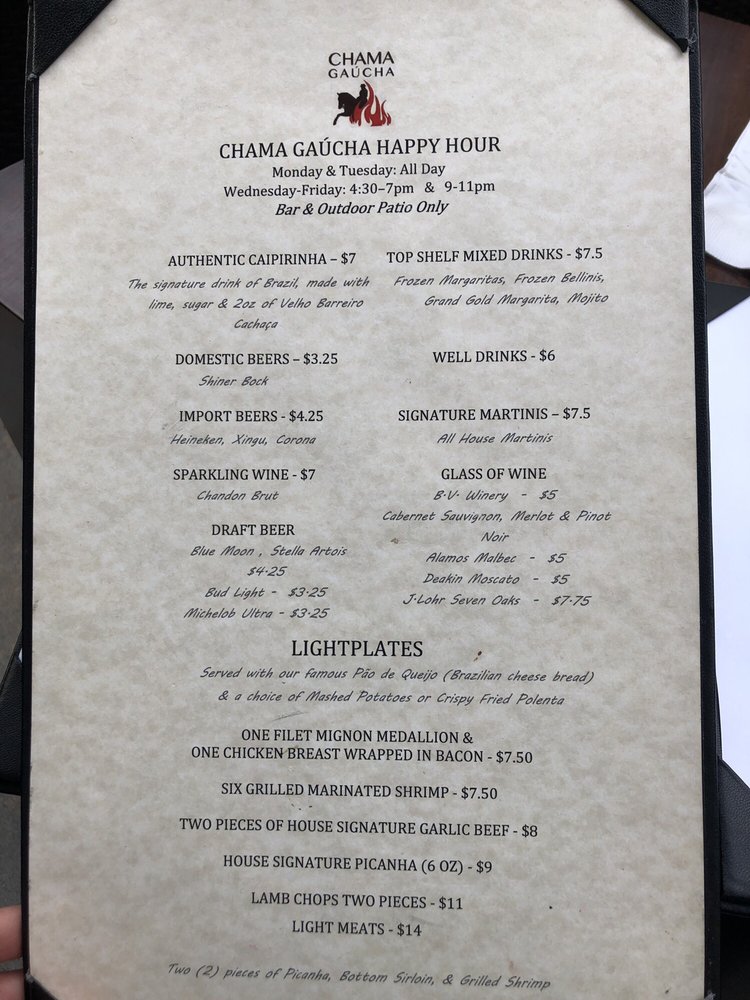 CHAMA
GAÚCHA
CHAMA GAÚCHA HAPPY HOUR
Monday & Tuesday: All Day
Wednesday-Friday: 4:30–7pm & 9-11pm
Bar & Outdoor Patio Only
AUTHENTIC CAIPIRINHA – $7
The signature drink of Brazil, made with
lime, sugar & 2oz of Velho Barreiro
Cachaça
DOMESTIC BEERS – $3.25
Shiner Bock
IMPORT BEERS - $4.25
Heineken, Xingu, Corona
SPARKLING WINE - $7
Chandon Brut
DRAFT BEER
Blue Moon , Stella Artois
$4.25
Bud Light - $3.25
Michelob Ultra - $3.25
TOP SHELF MIXED DRINKS - $7.5
Frozen Margaritas, Frozen Bellinis,
Grand Gold Margarita, Mojito
WELL DRINKS - $6
SIGNATURE MARTINIS – $7.5
All House Martinis
GLASS OF WINE
B.V. Winery - $5
Cabernet Sauvignon, Merlot & Pinot
Noir
Alamos Malbec - $5
Deakin Moscato - $5
J.Lohr Seven Oaks - $7.75
LIGHTPLATES
Served with our famous Pão de Queijo (Brazilian cheese bread)
& a choice of Mashed Potatoes or Crispy Fried Polenta
ONE FILET MIGNON MEDALLION &
ONE CHICKEN BREAST WRAPPED IN BACON - $7.50
SIX GRILLED MARINATED SHRIMP - $7.50
TWO PIECES OF HOUSE SIGNATURE GARLIC BEEF - $8
HOUSE SIGNATURE PICANHA (6 OZ) - $9
LAMB CHOPS TWO PIECES - $11
LIGHT MEATS - $14
Two (2) pieces of Picanha, Bottom Sirloin, & Grilled Shrimp